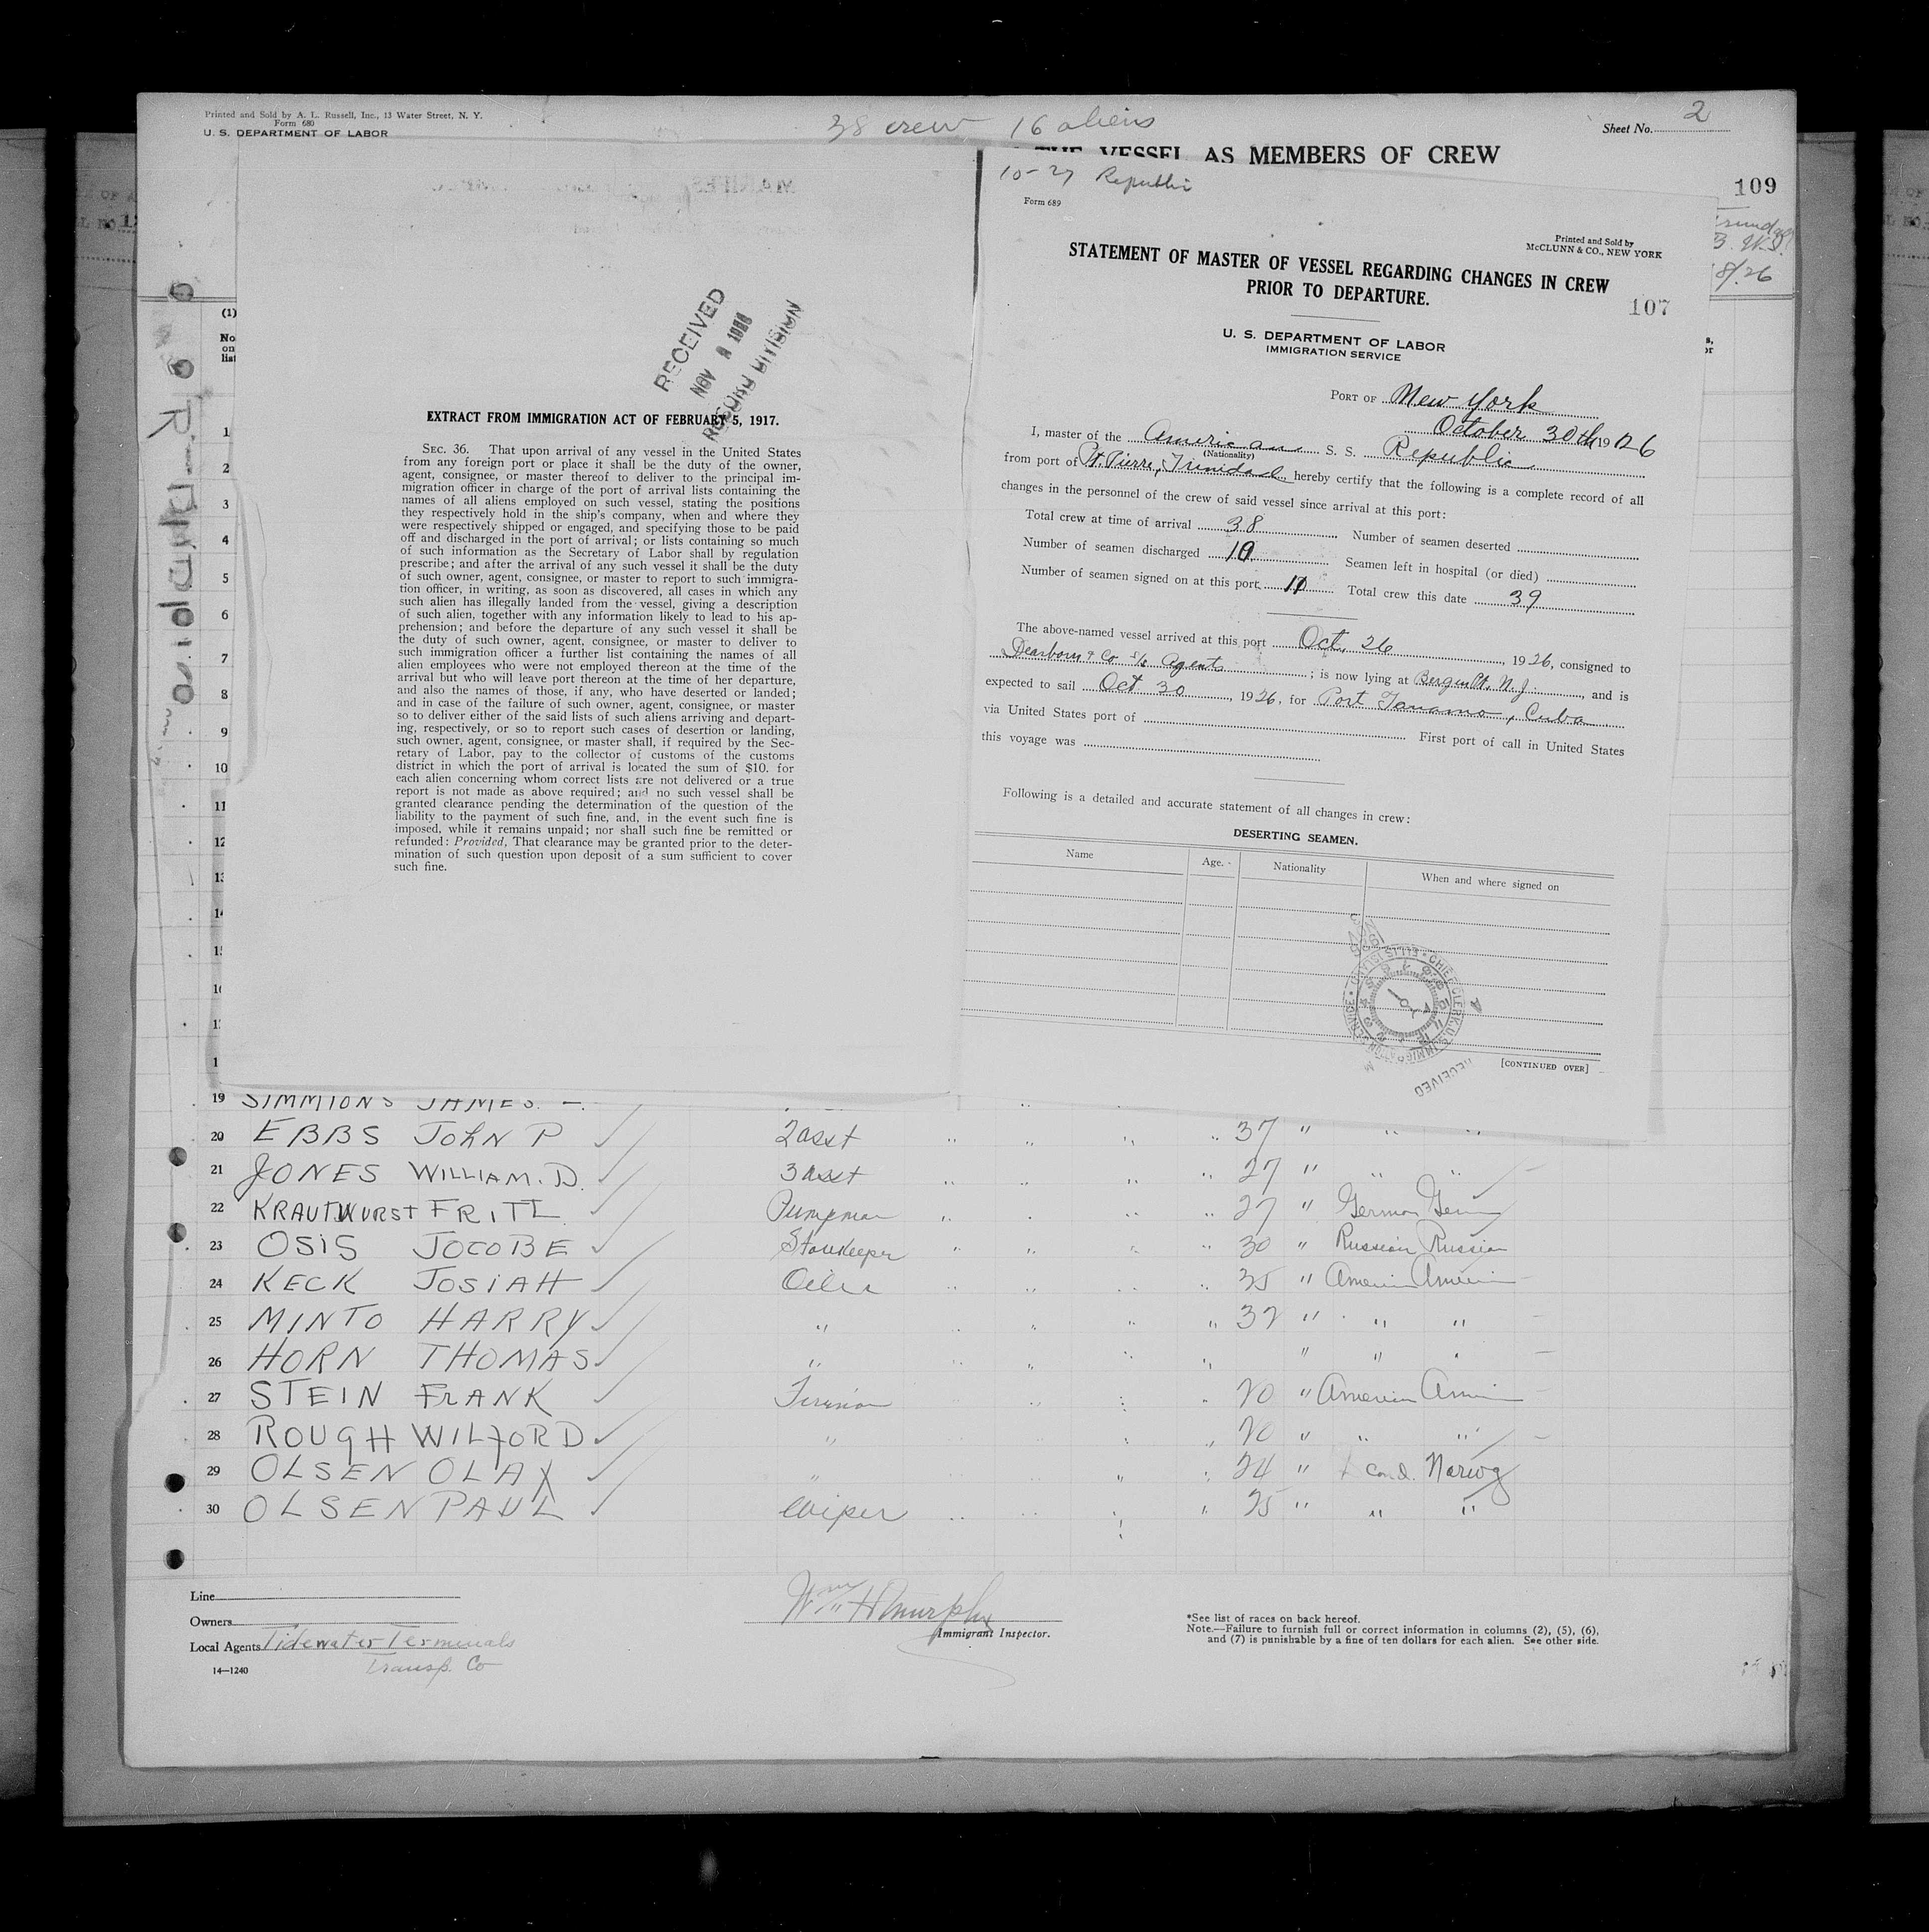 Printed and Sold by A. L. Russell, Inc., 13 Water Street, N. Y.
Form 680
U. S. DEPARTMENT OF LABOR
38 crew 16 aliens
Sheet No. 2
THE VESSEL AS MEMBERS OF CREW
109
EXTRACT FROM IMMIGRATION ACT OF FEBRUARY 5, 1917.
RECEIVED
NOV
RECORD DIVISION
SEC. 36. That upon arrival of any vessel in the United States
from any foreign port or place it shall be the duty of the owner,
agent, consignee, or master thereof to deliver to the principal im-
migration officer in charge of the port of arrival lists containing the
names of all aliens employed on such vessel, stating the positions
they respectively hold in the ship's company, when and where they
were respectively shipped or engaged, and specifying those to be paid
off and discharged in the port of arrival; or lists containing so much
of such information as the Secretary of Labor shall by regulation
prescribe; and after the arrival of any such vessel it shall be the duty
of such owner, agent, consignee, or master to report to such immigra-
tion officer, in writing, as soon as discovered, all cases in which any
such alien has illegally landed from the vessel, giving a description
of such alien, together with any information likely to lead to his ap-
prehension; and before the departure of any such vessel it shall be
the duty of such owner, agent, consignee, or master to deliver to
such immigration officer a further list containing the names of all
alien employees who were not employed thereon at the time of the
arrival but who will leave port thereon at the time of her departure,
and also the names of those, if any, who have deserted or landed;
and in case of the failure of such owner, agent, consignee, or master
so to deliver either of the said lists of such aliens arriving and depart-
ing, respectively, or so to report such cases of desertion or landing,
such owner, agent, consignee, or master shall, if required by the Sec-
retary of Labor, pay to the collector of customs of the customs
district in which the port of arrival is located the sum of $10. for
each alien concerning whom correct lists are not delivered or a true
report is not made as above required; and no such vessel shall be
granted clearance pending the determination of the question of the
liability to the payment of such fine, and, in the event such fine is
imposed, while it remains unpaid; nor shall such fine be remitted or
refunded: Provided, That clearance may be granted prior to the deter-
mination of such question upon deposit of a sum sufficient to cover
such fine.
10-27 Republic
Form 689
Printed and Sold by
McCLUNN & CO., NEW YORK
STATEMENT OF MASTER OF VESSEL REGARDING CHANGES IN CREW
PRIOR TO DEPARTURE.
107
U. S. DEPARTMENT OF LABOR
IMMIGRATION SERVICE
PORT OF New York
October 30th 1926
I, master of the American S. S. Republic
(Nationality)
from port of Pt. Pierre, Trinidad, hereby certify that the following is a complete record of all
changes in the personnel of the crew of said vessel since arrival at this port:
Total crew at time of arrival 38 Number of seamen deserted
Number of seamen discharged 10 Seamen left in hospital (or died)
Number of seamen signed on at this port 11 Total crew this date 39
The above-named vessel arrived at this port Oct. 26, 1926, consigned to
Dearborn & Co s/s Agents; is now lying at Bergen Pt. N. J., and is
expected to sail Oct 30, 1926, for Port Tanamo, Cuba
via United States port of First port of call in United States
this voyage was
Following is a detailed and accurate statement of all changes in crew:
DESERTING SEAMEN.
Name Age. Nationality When and where signed on
CHIEF CLERK, U.S. IMMIGRATION SERVICE • ELLIS ISLAND
RECEIVED
[CONTINUED OVER]
(1)
No.
on
list
1
2
3
4
5
6
7
8
9
10
11
12
19 SIMMIONS JAMES.
20 EBBS JOHN P 2asst 37 " " "
21 JONES WILLIAM. D. 3 asst 27 " " "
22 KRAUTWURST FRITZ Pumpman 27 " German Ger
23 OSIS JOCOBE Storekeeper 30 " Russian Russian
24 KECK JOSIAH Oiler 35 " American American
25 MINTO HARRY " 32 " " "
26 HORN THOMAS " " " "
27 STEIN FRANK Fireman 20 " American American
28 ROUGH WILFORD " 20 " " "
29 OLSEN OLAF " 24 " Scand. Norwg
30 OLSEN PAUL Wiper 25 " " "
Line
Owners
Local Agents Tidewater Terminals
Transp. Co
14—1240
Wm H Murphy
Immigrant Inspector.
*See list of races on back hereof.
Note.—Failure to furnish full or correct information in columns (2), (5), (6),
and (7) is punishable by a fine of ten dollars for each alien. See other side.